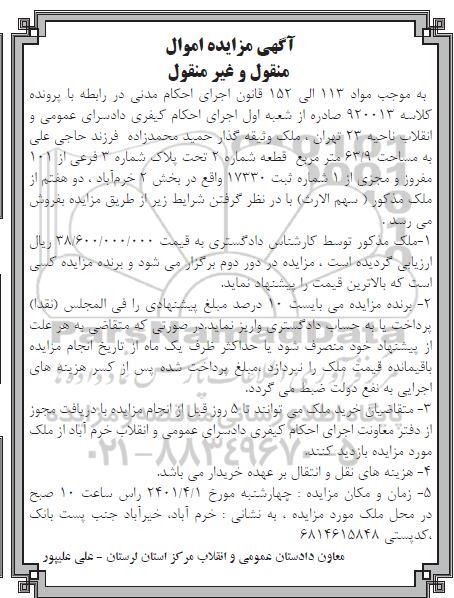 آگهی مزایده اموال
منقول و غیر منقول
به موجب مواد ۱۱۳ الی ۱۵۲ قانون اجرای احکام مدنی در رابطه با پرونده
کلاسه ۹۲۰۰۱۳ صادره از شعبه اول اجرای احکام کیفری دادسرای عمومی و
انقلاب ناحیه ۲۳ تهران ، ملک وثیقه گذار حمید محمدزاده فرزند حاجی علی
به مساحت ۶۳/۹ متر مربع قطعه شماره ۲ تحت پلاک شماره ۳ فرعی از ۱۰۱
مفروز و مجزی از ۱ شماره ثبت ۱۷۳۳۰ واقع در بخش ۲ خرم‌آباد ، دو هفتم از
ملک مذکور ( سهم الارث) با در نظر گرفتن شرایط زیر از طریق مزایده بفروش
می رسد .
۱-ملک مذکور توسط کارشناس دادگستری به قیمت ۳۸/۶۰۰/۰۰۰/۰۰۰ ریال
ارزیابی گردیده است ، مزایده در دور دوم برگزار می شود و برنده مزایده کسی
است که بالاترین قیمت را پیشنهاد نماید.
۲- برنده مزایده می بایست ۱۰ درصد مبلغ پیشنهادی را فی المجلس (نقدا)
پرداخت یا به حساب دادگستری واریز نماید.در صورتی که متقاضی به هر علت
از پیشنهاد خود منصرف شود یا حداکثر ظرف یک ماه از تاریخ انجام مزایده
باقیمانده قیمت ملک را نپردازد ،مبلغ پرداخت شده پس از کسر هزینه های
اجرایی به نفع دولت ضبط می گردد.
۳- متقاضیان خرید ملک می توانند تا ۵ روز قبل از انجام مزایده با دریافت مجوز
از دفتر معاونت اجرای احکام کیفری دادسرای عمومی و انقلاب خرم آباد از ملک
مورد مزایده بازدید کنند.
۴- هزینه های نقل و انتقال بر عهده خریدار می باشد.
۵- زمان و مکان مزایده : چهارشنبه مورخ ۲۴۰۱/۴/۱ راس ساعت ۱۰ صبح
در محل ملک مورد مزایده ، به نشانی : خرم آباد، خیرآباد جنب پست بانک
،کدپستی ۶۸۱۴۶۱۵۸۴۸
معاون دادستان عمومی و انقلاب مرکز استان لرستان - علی علیپور
ParsNamadData
۰۲۱-۸۸۳۴۹۶۷۰-۵